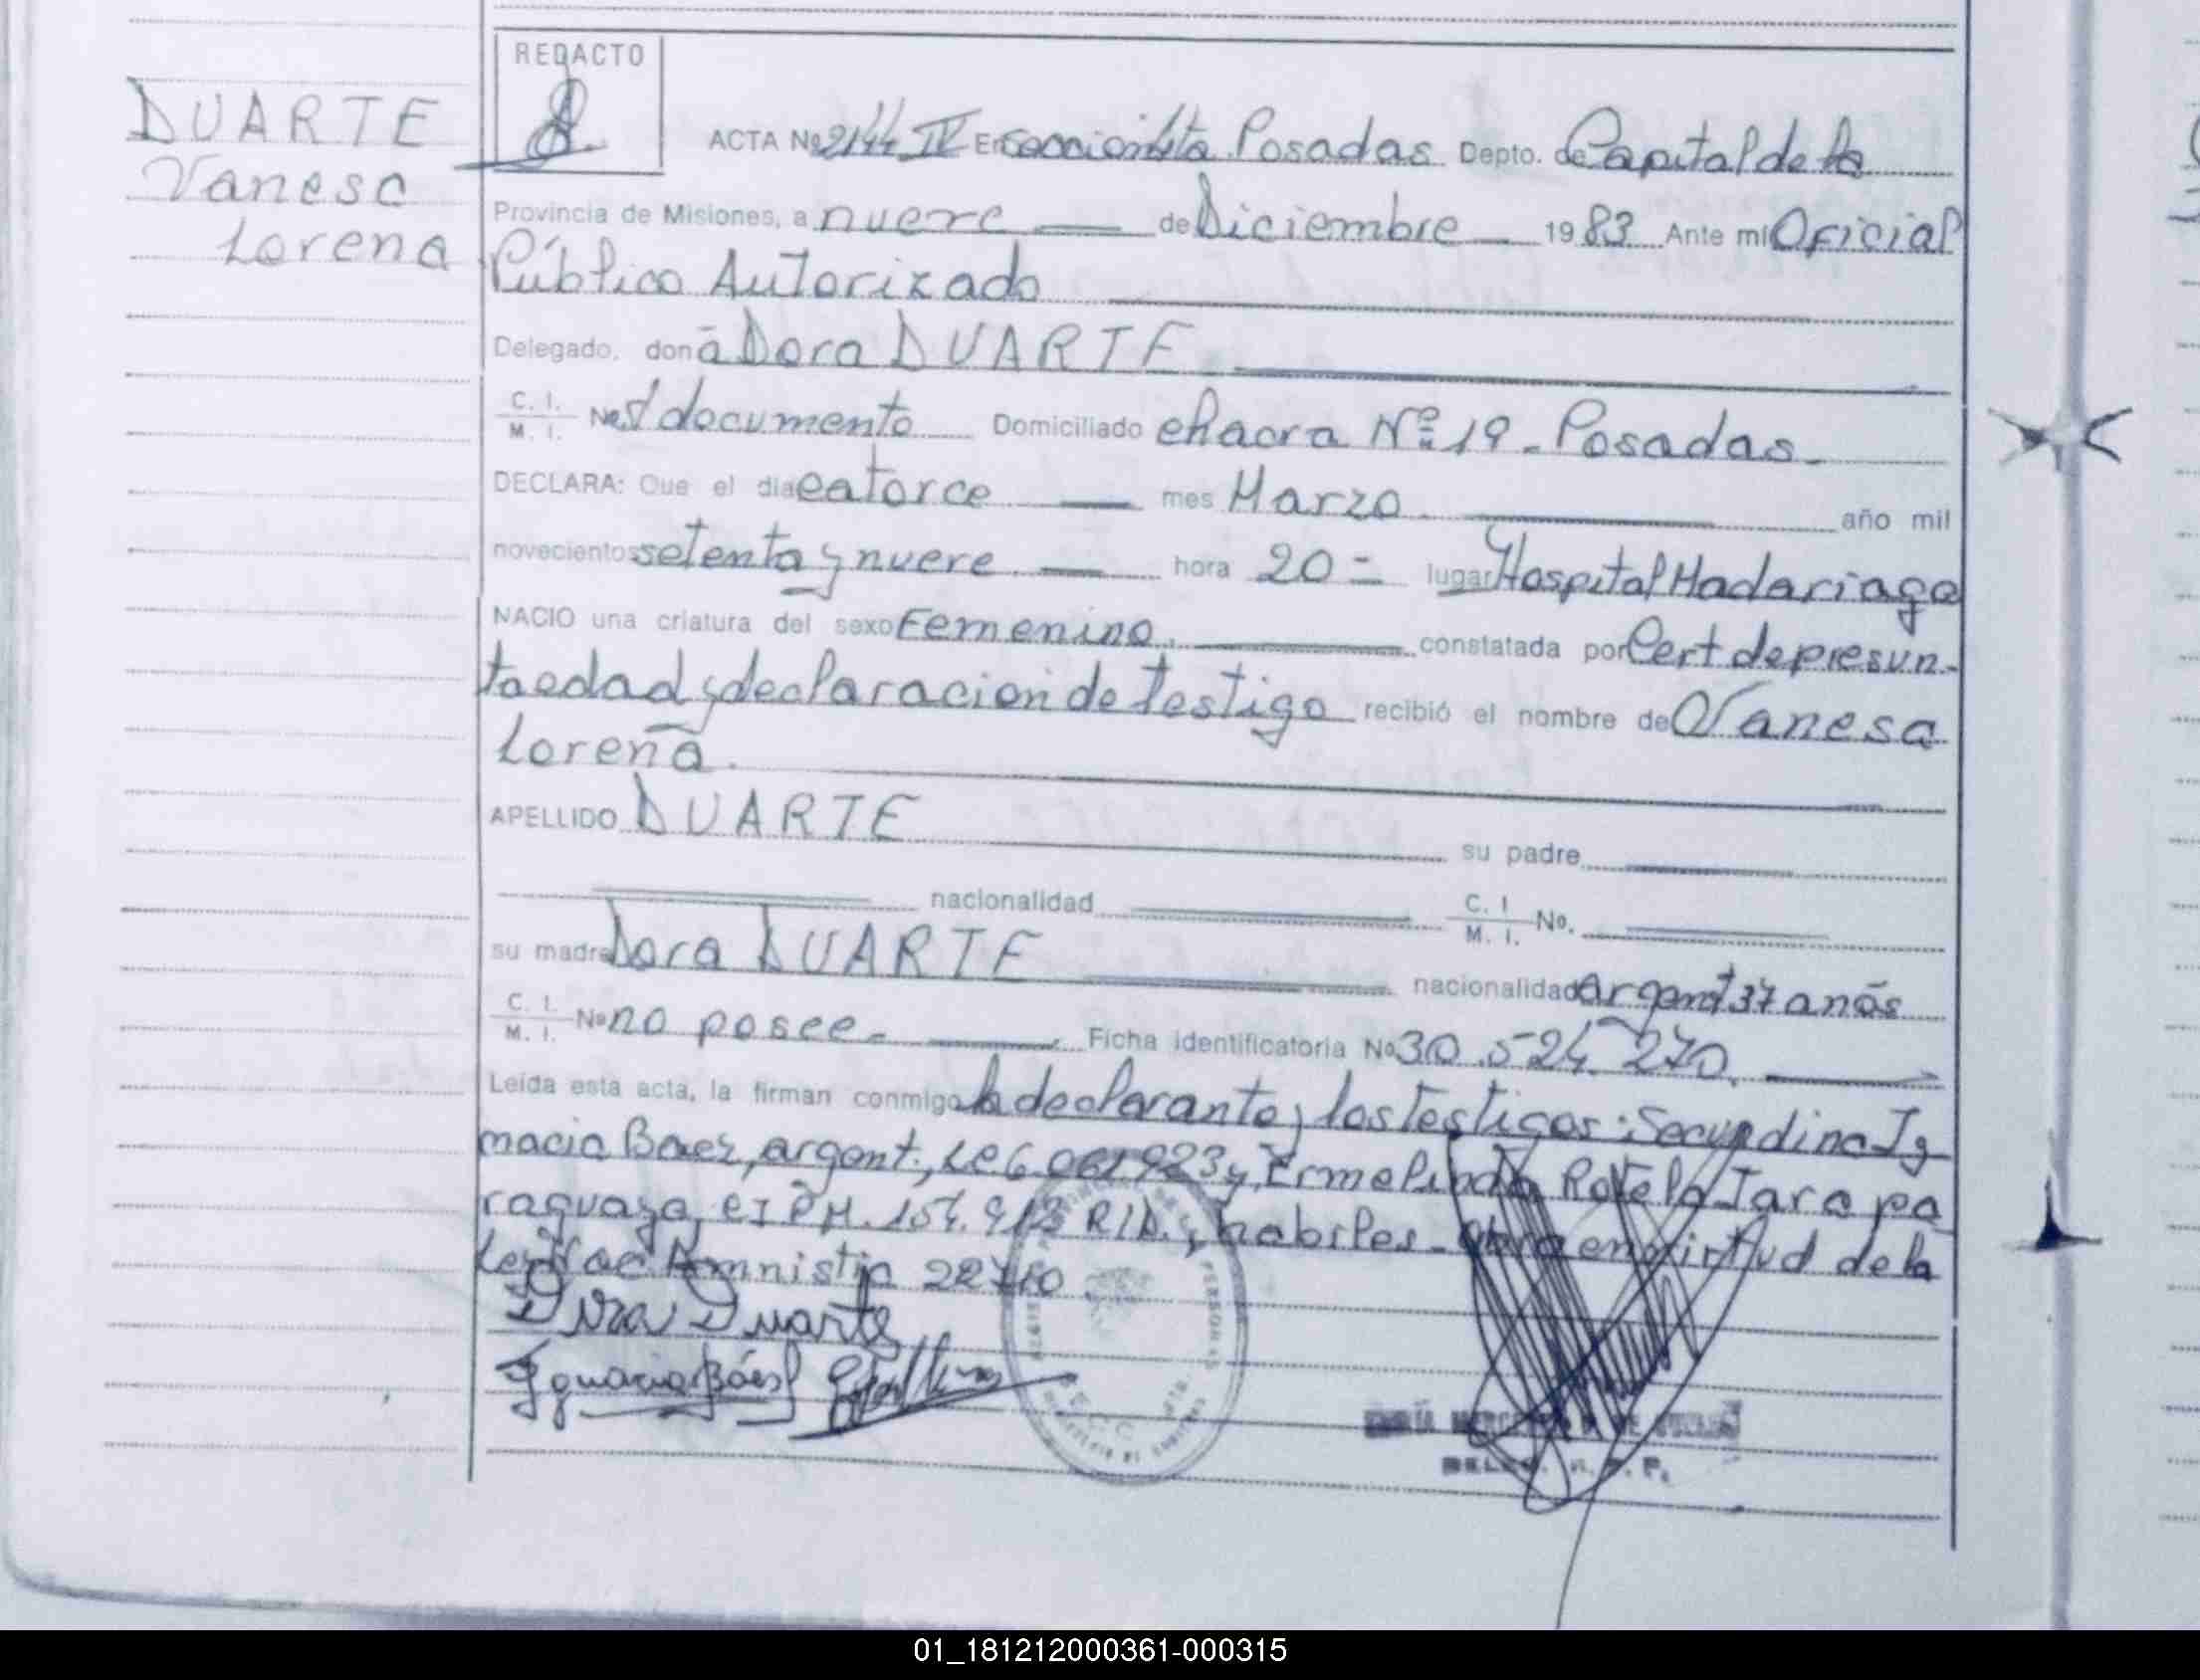 REDACTO
DUARTE
Vanesa
Lorena
ACTA No 2144 IV En Sección 1ta Posadas Depto. de Capital de la
Provincia de Misiones, a nueve de Diciembre 1983 Ante mi Oficial
Público Autorizado
Delegado, doña Dora DUARTE
C. I.
M. I. No s/documento Domiciliado chacra Nº 19 - Posadas -
DECLARA: Que el dia catorce mes Marzo año mil
novecientos setenta y nueve hora 20 = lugar Hospital Madariaga
NACIO una criatura del sexo Femenino. constatada por Cert de presun-
ta edad y declaracion de testigo recibió el nombre de Vanesa
Lorena.
APELLIDO DUARTE su padre
nacionalidad C. I.
M. I. No.
su madre Dora DUARTE nacionalidad argent 37 años
C. I.
M. I. No no posee - Ficha identificatoria No 30.524.270.
Leída esta acta, la firman conmigo la declarante y los testigos: Secundina Ig
nacia Baez, argent., LC 6.061.923 y Ermelinda Rotela Jara pa
raguaya, CI PM. 154.913 R/D., habiles - en virtud de la
Ley Nac Amnistia 22710
Dora Duarte
Ignacia Báez
DE LAS PERSONAS
01_181212000361-000315